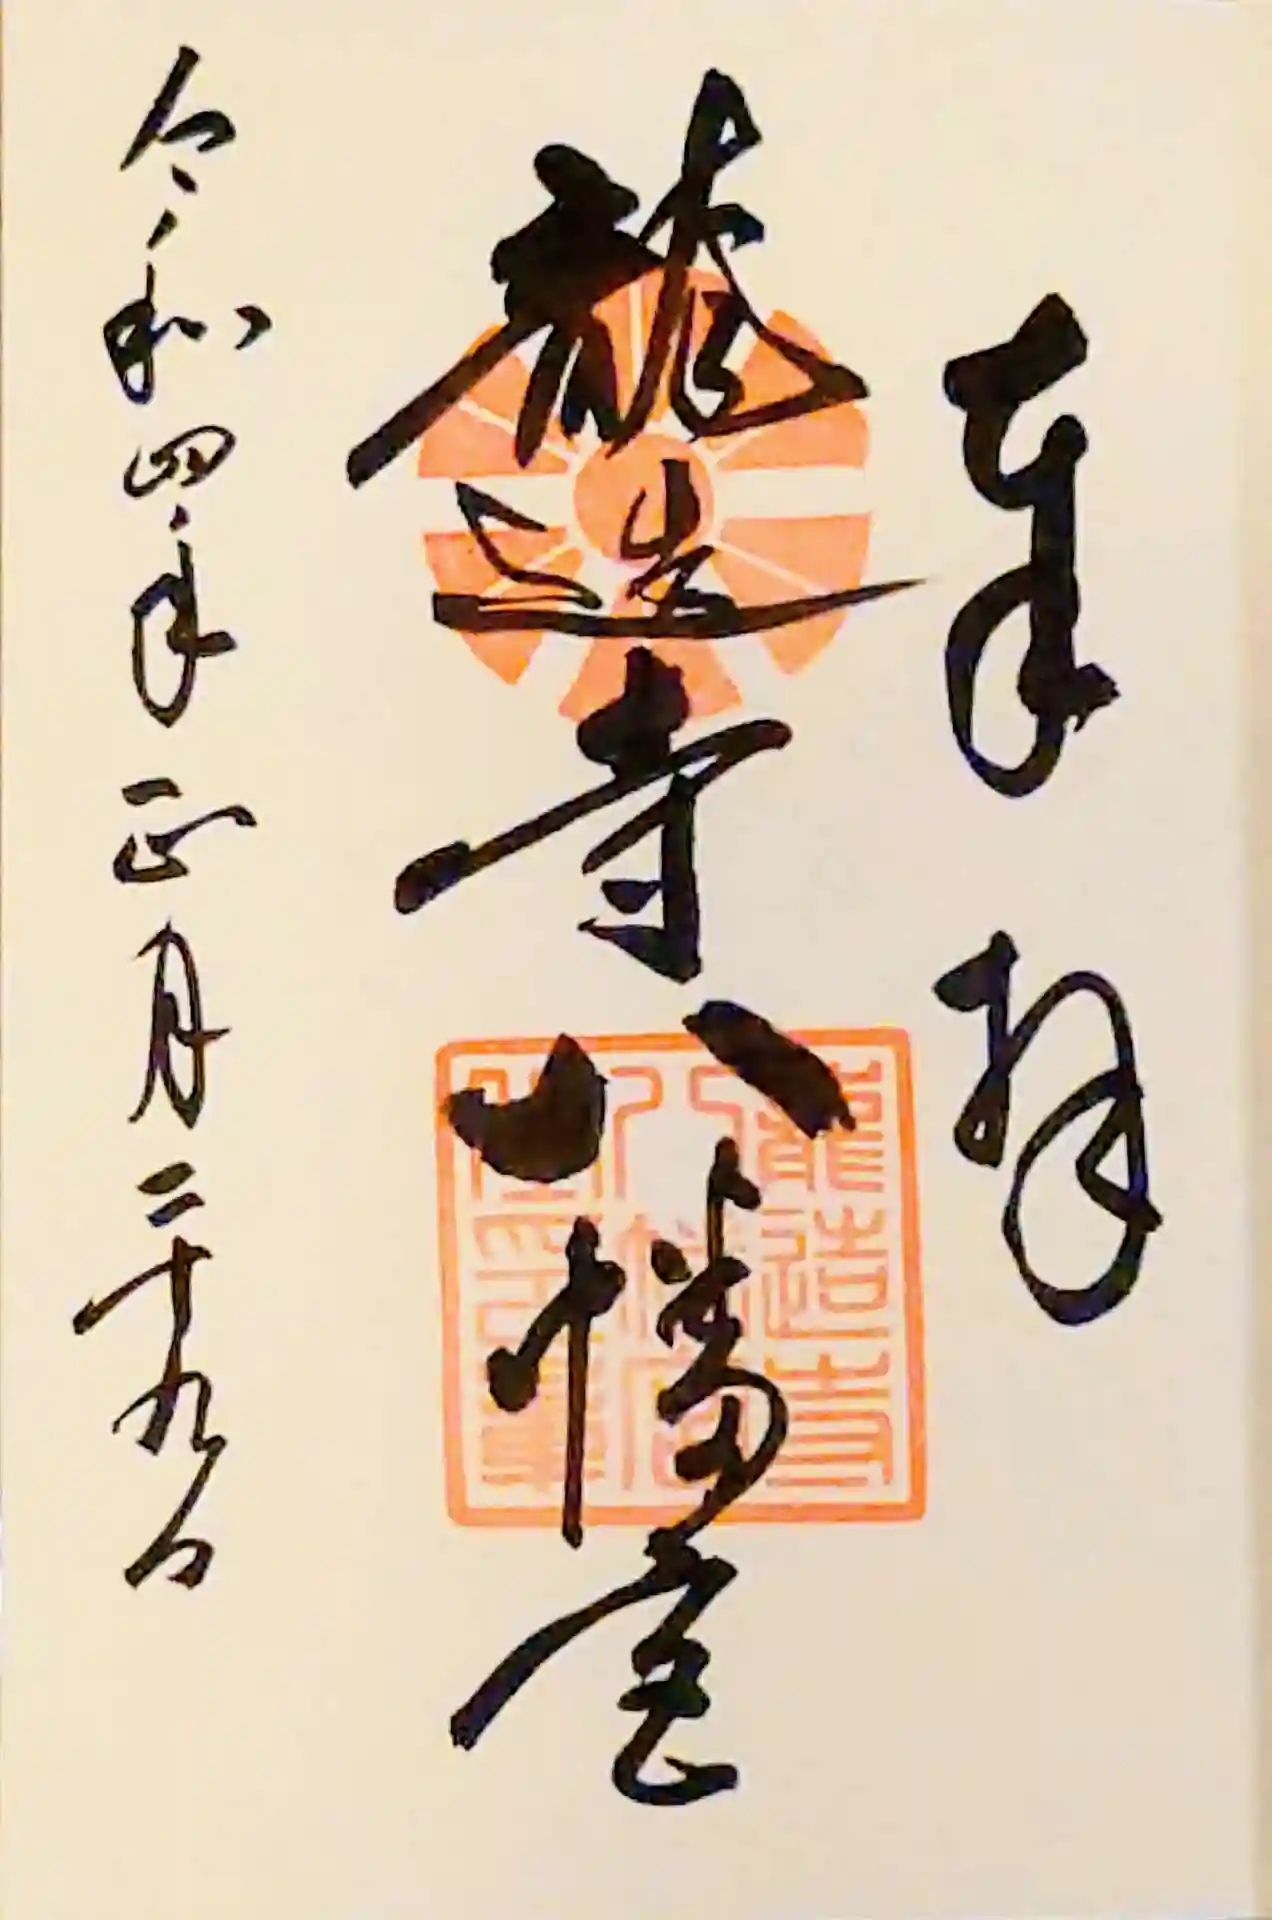 奉拝
龍造寺八幡宮
龍造寺
八幡宮
令和四年正月二十九日